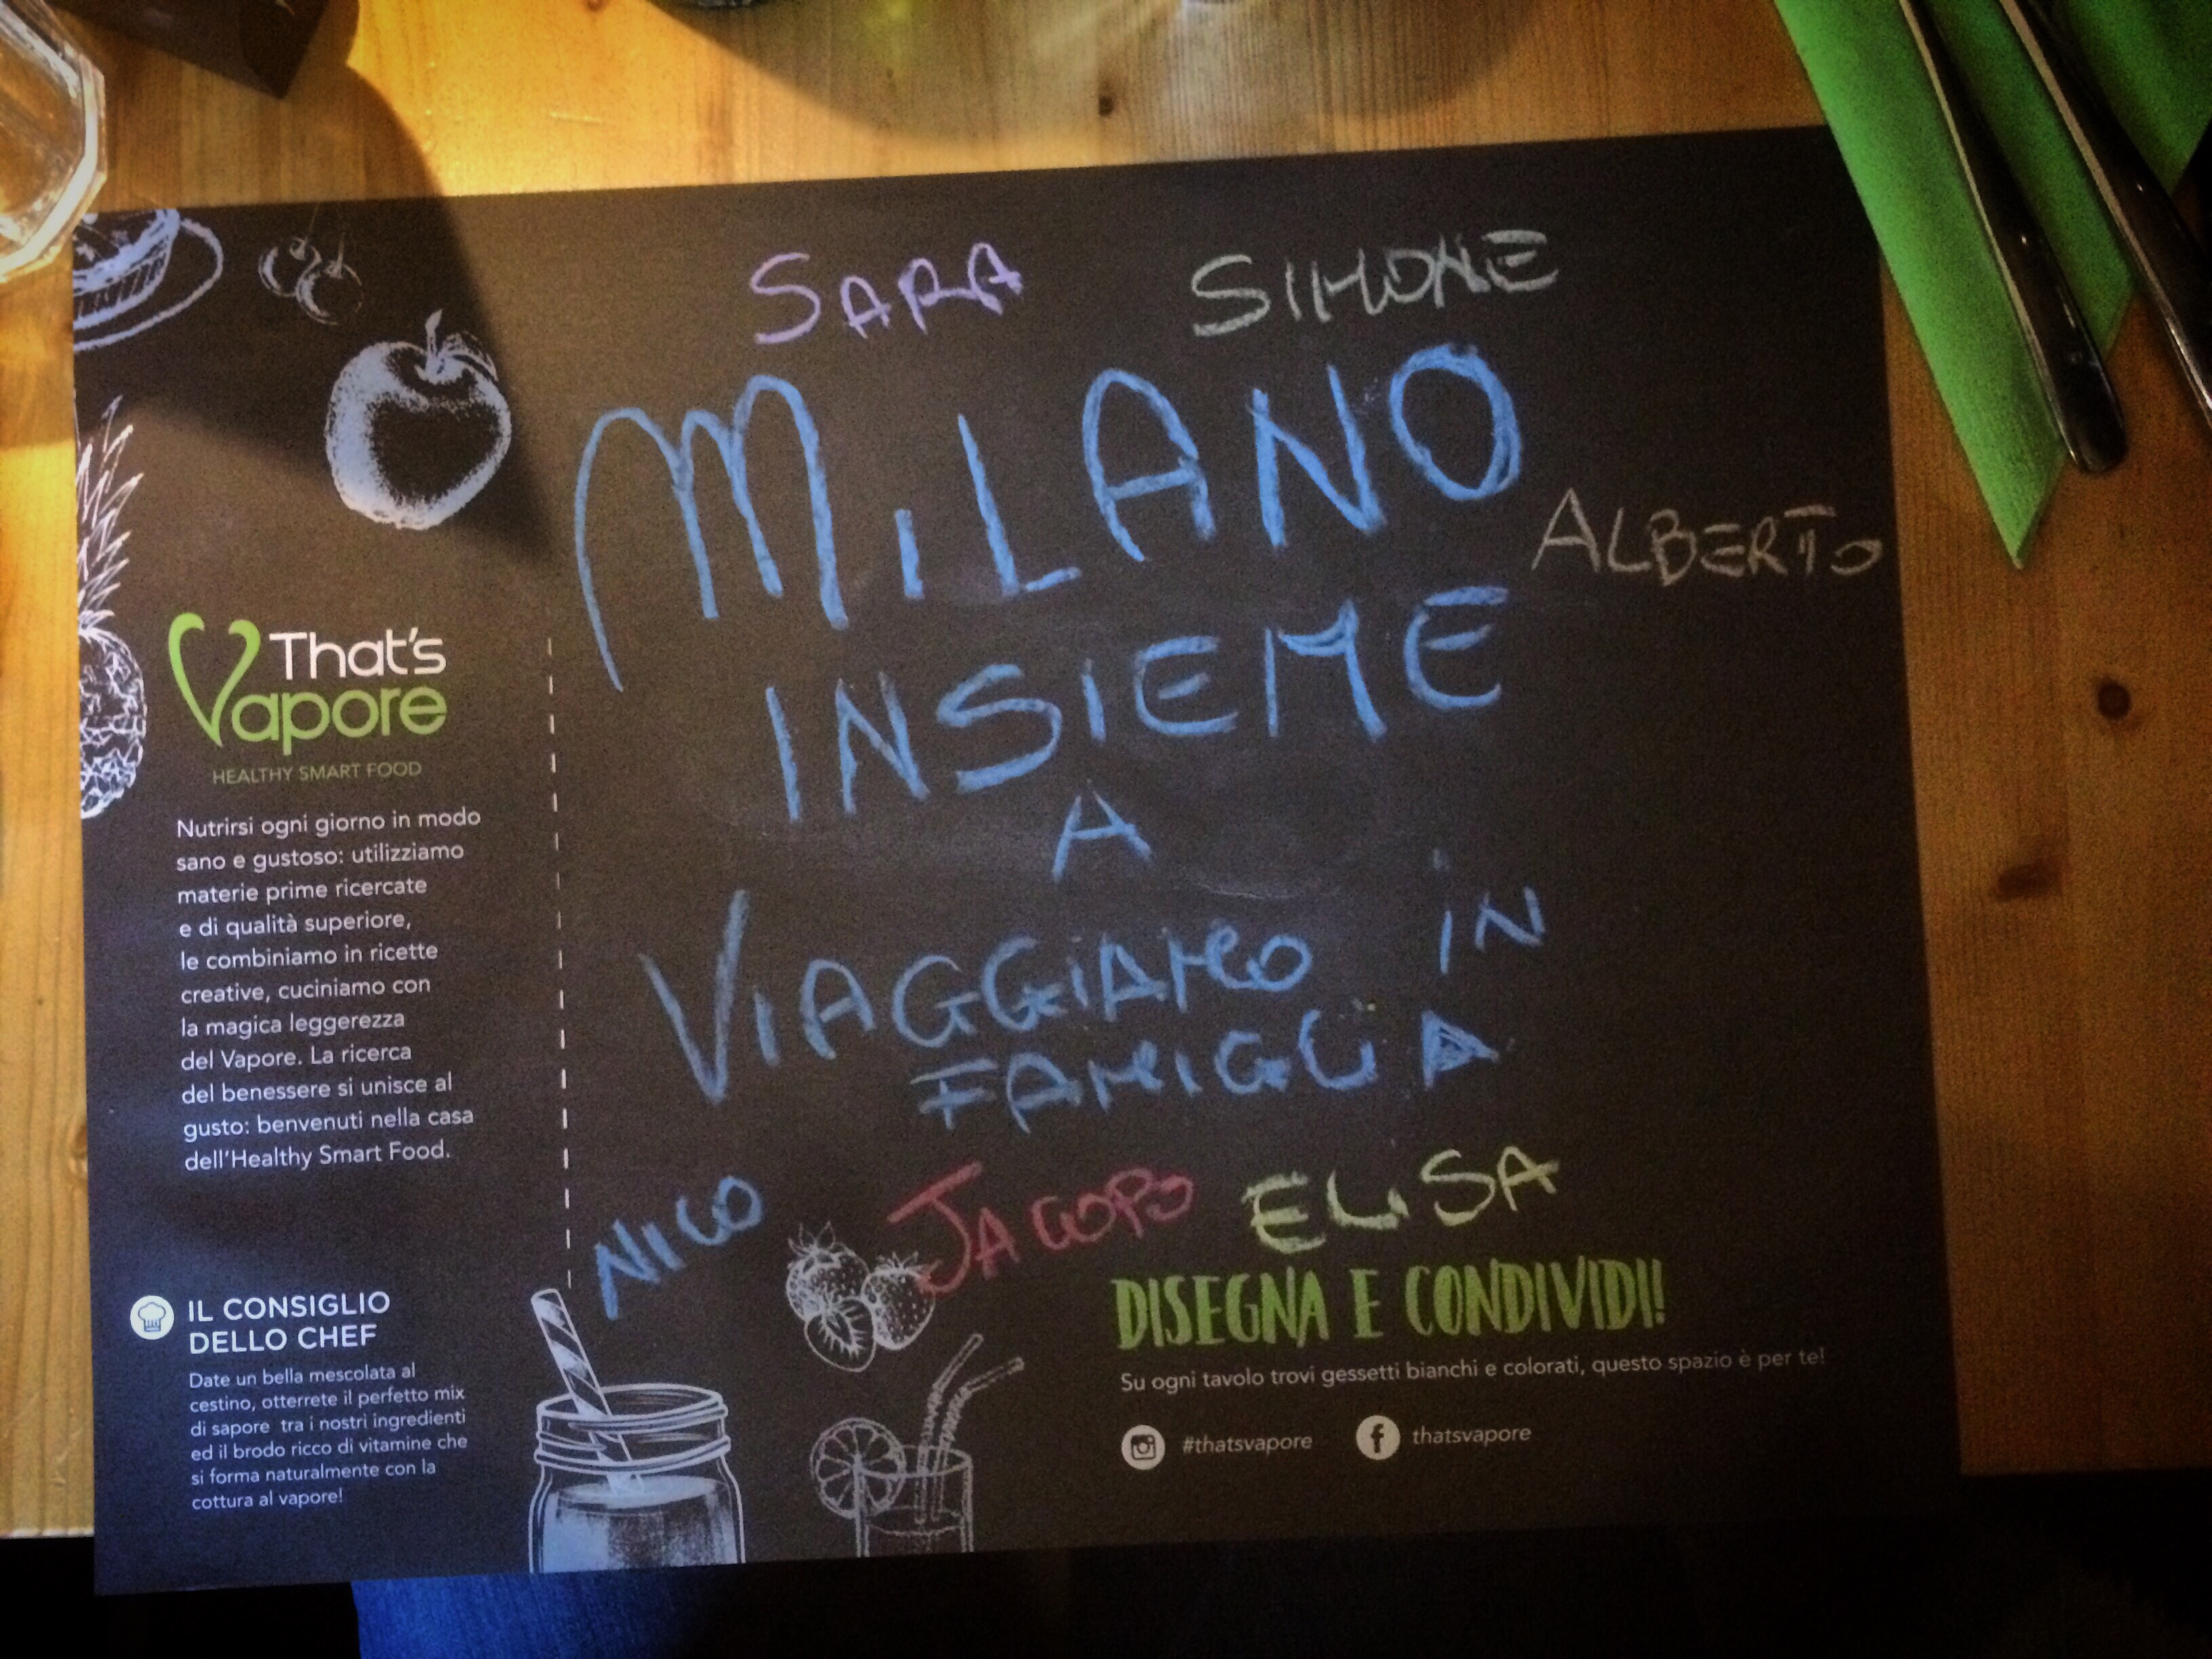 SARA SIMONE
MiLANO
ALBERTO
INSIEME
A
VIAGGIAMO iN
FAMIGLIA
NICO JACOPO ELISA
That's
Vapore
HEALTHY SMART FOOD
Nutrirsi ogni giorno in modo
sano e gustoso: utilizziamo
materie prime ricercate
e di qualità superiore,
le combiniamo in ricette
creative, cuciniamo con
la magica leggerezza
del Vapore. La ricerca
del benessere si unisce al
gusto: benvenuti nella casa
dell'Healthy Smart Food.
IL CONSIGLIO
DELLO CHEF
Date un bella mescolata al
cestino, otterrete il perfetto mix
di sapore tra i nostri ingredienti
ed il brodo ricco di vitamine che
si forma naturalmente con la
cottura al vapore!
DISEGNA E CONDIVIDI!
Su ogni tavolo trovi gessetti bianchi e colorati, questo spazio è per te!
#thatsvapore thatsvapore